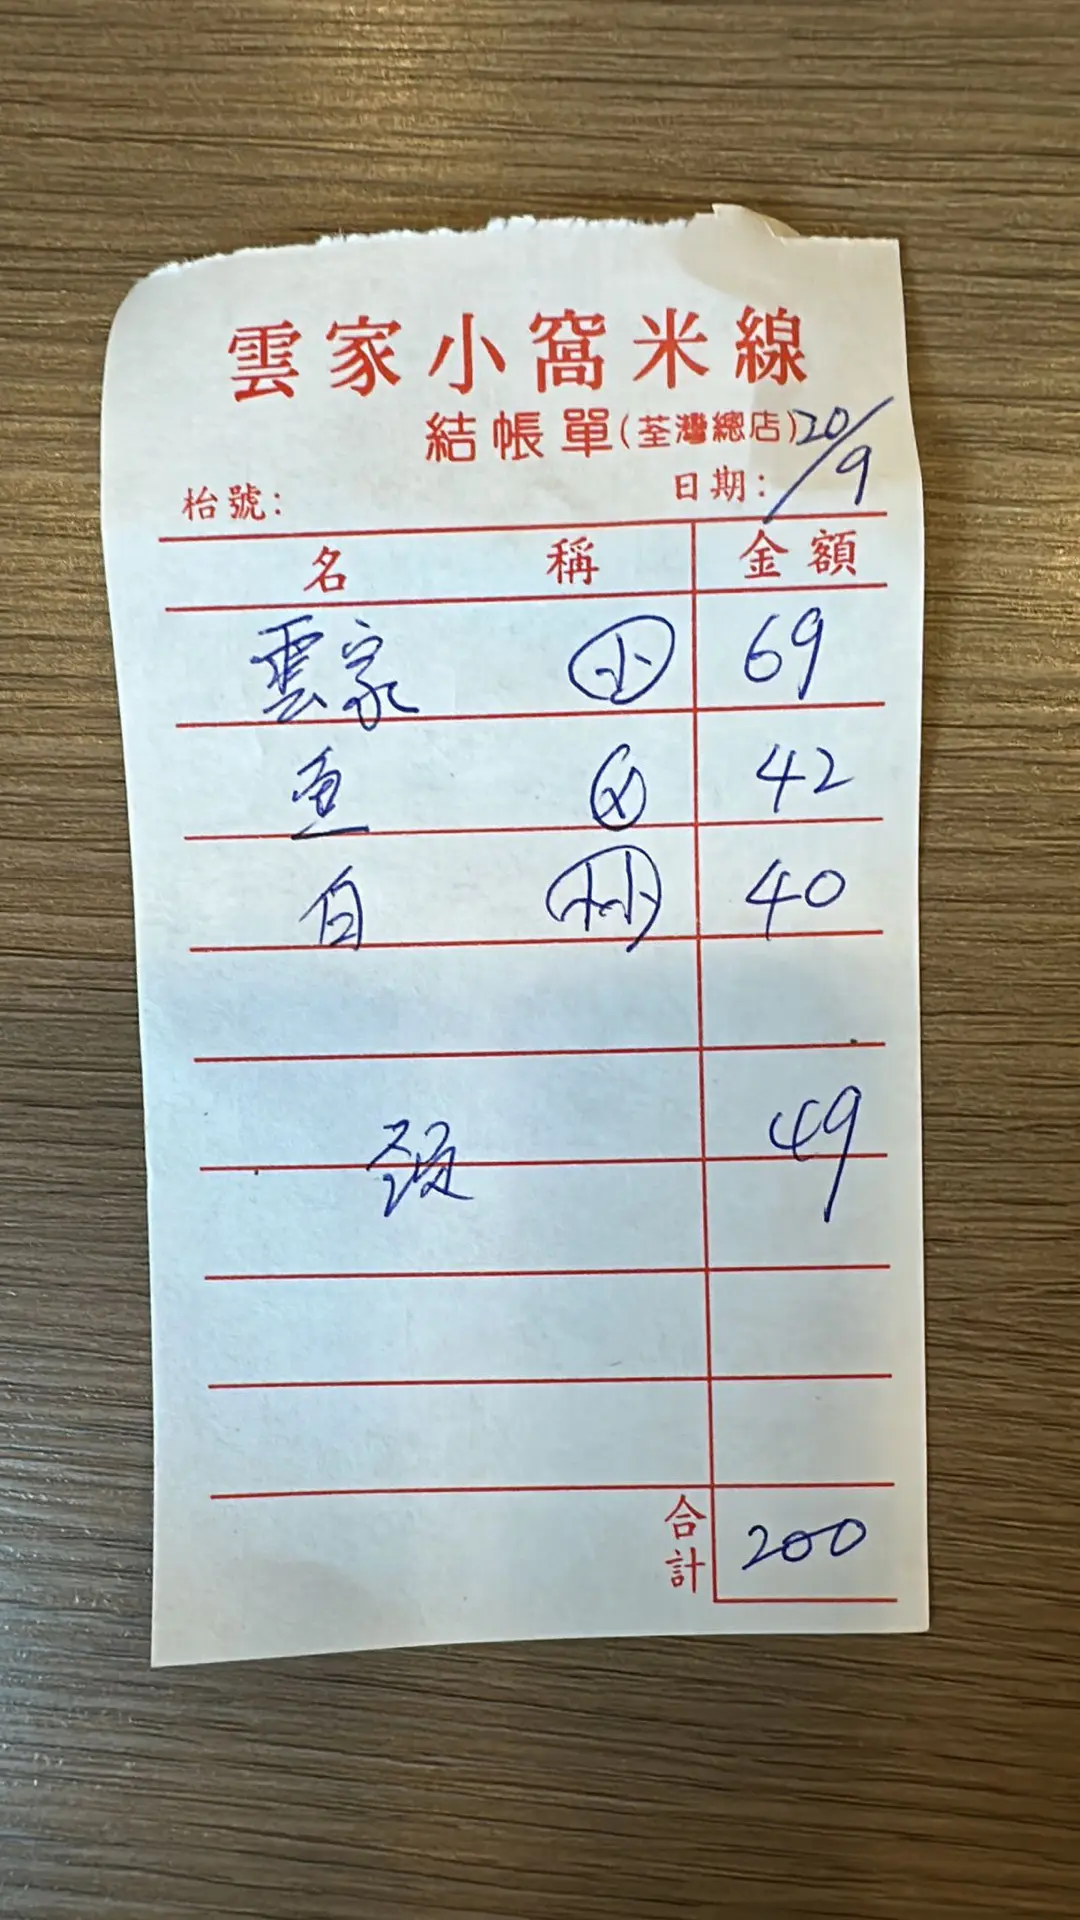 雲家小窩米線
結帳單(荃灣總店)
枱號: 日期: 20/9
名稱 金額
雲家 小 69
魚 42
白 小小 40
49
合計 200